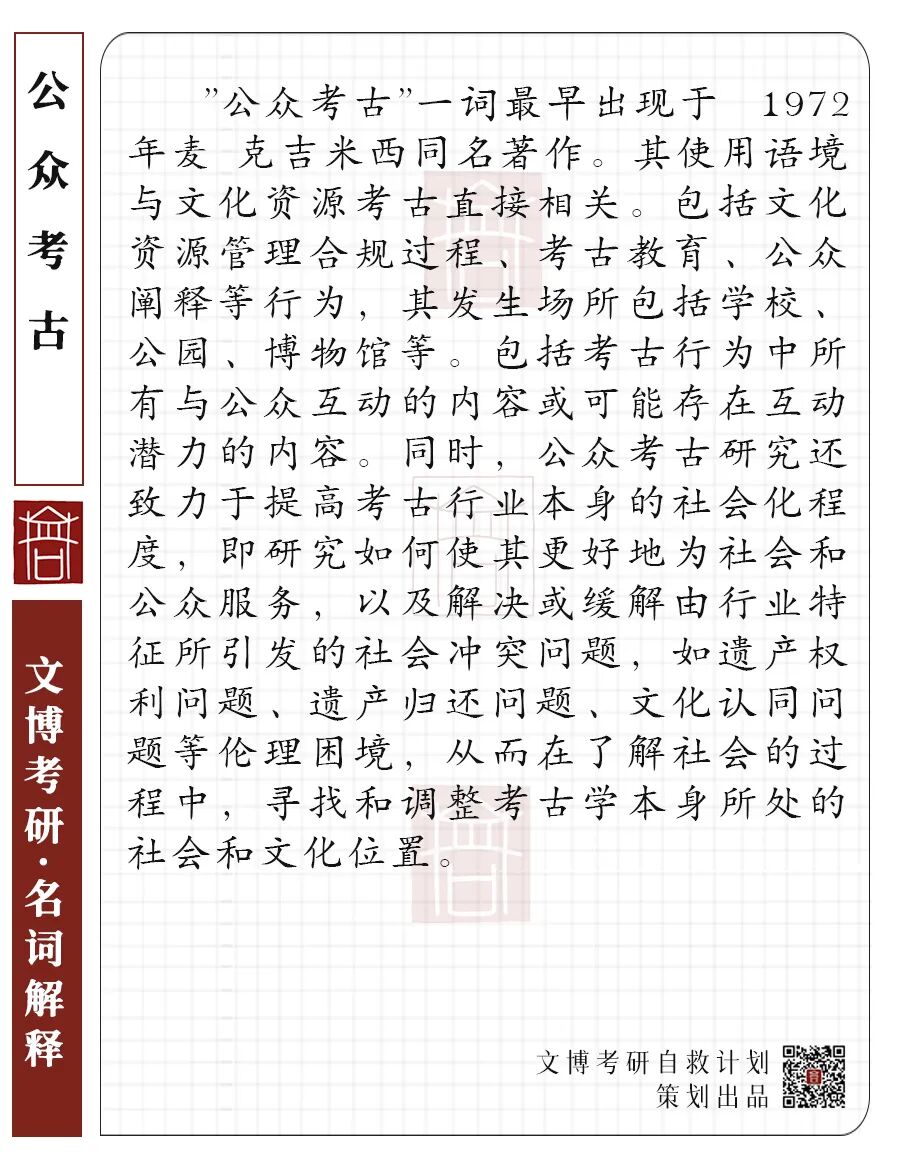 公众考古
文博考研·名词解释
”公众考古”一词最早出现于 1972
年麦 克吉米西同名著作。其使用语境
与文化资源考古直接相关。包括文化
资源管理合规过程、考古教育、公众
阐释等行为，其发生场所包括学校、
公园、博物馆等。包括考古行为中所
有与公众互动的内容或可能存在互动
潜力的内容。同时，公众考古研究还
致力于提高考古行业本身的社会化程
度，即研究如何使其更好地为社会和
公众服务，以及解决或缓解由行业特
征所引发的社会冲突问题，如遗产权
利问题、遗产归还问题、文化认同问
题等伦理困境，从而在了解社会的过
程中，寻找和调整考古学本身所处的
社会和文化位置。
文博考研自救计划
策划出品